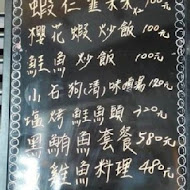 蝦仁韭菜 100元
櫻花蝦炒飯 100元
鮭魚炒飯 100元
小石狗(清)味噌湯 120元
塩烤鮭魚頭 220元
黑鮪魚套餐 580元
鮭魚料理 480元